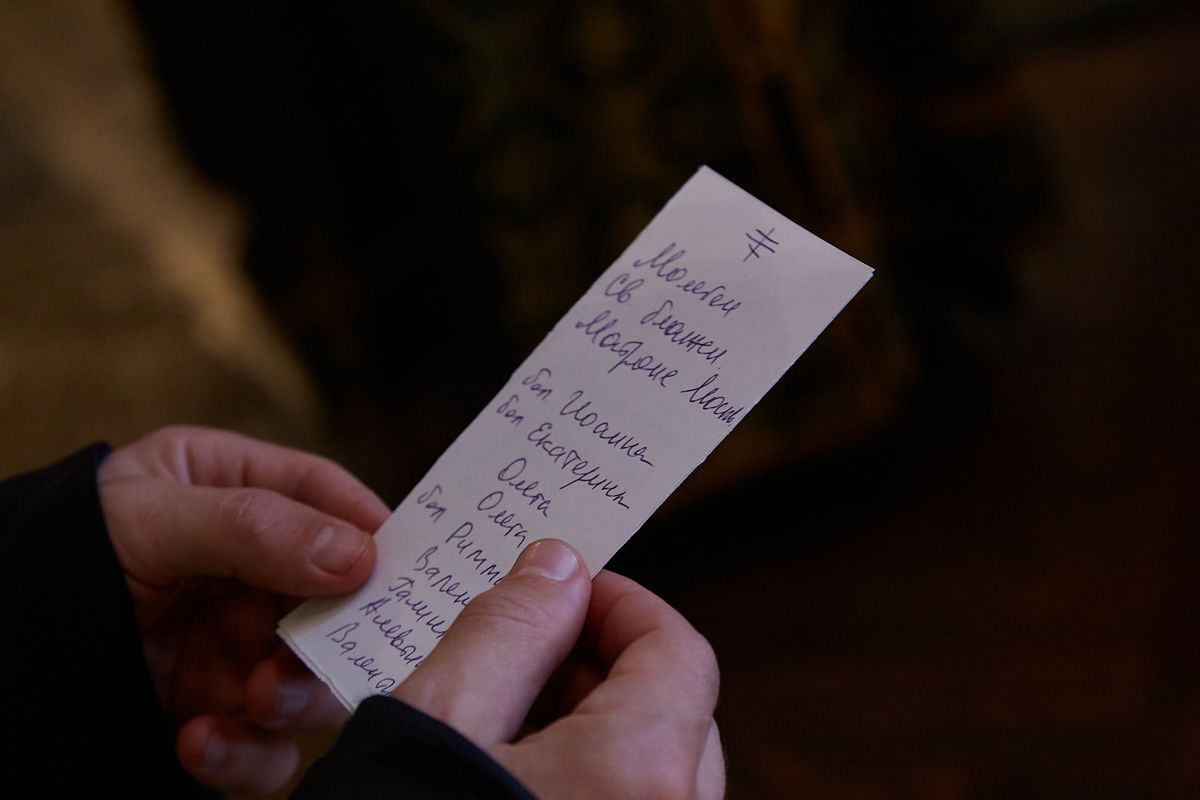 Молебен
Св. блажен.
Матроне Моск
бол. Иоанна
бол Екатерины
Ольга
Ольга
бол Римм
Вален
Галин
Алевти
Вален